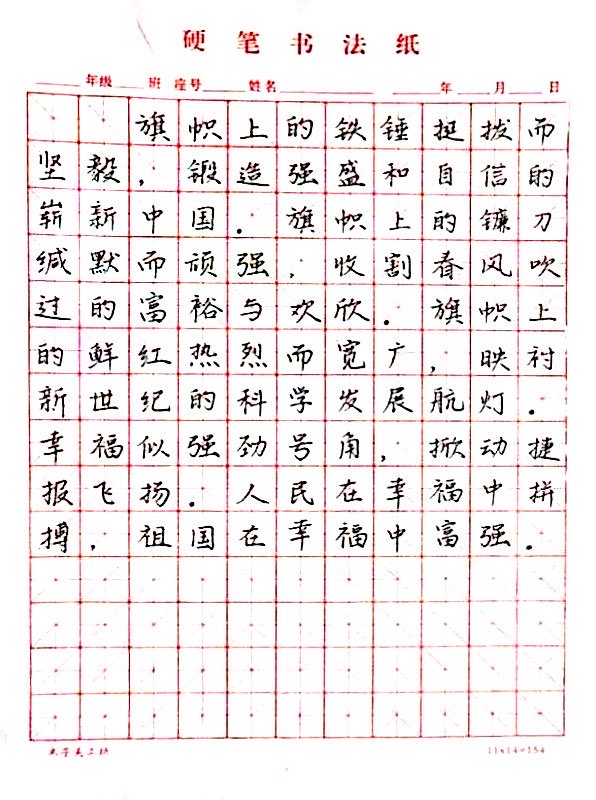 硬笔书法纸
年级 班 座号 姓名 年 月 日
旗帜上的铁锤挺拨而
坚毅，锻造强盛和自信的
崭新中国。旗帜上的镰刀
缄默而顽强，收割春风吹
过的富裕与欢欣。旗帜上
的鲜红热烈而宽广，映衬
新世纪的科学发展航灯。
幸福似强劲号角，掀动捷
报飞扬。人民在幸福中拼
搏，祖国在幸福中富强。
11x14=154